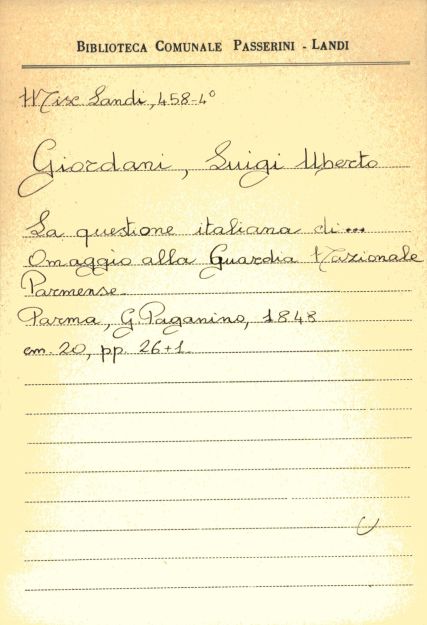 BIBLIOTECA COMUNALE PASSERINI - LANDI
Misc. Landi, 458-4°
Giordani, Luigi Uberto
La questione italiana di...
Omaggio alla Guardia Nazionale
Parmense.
Parma, G. Paganino, 1848
cm. 20, pp. 26+1.